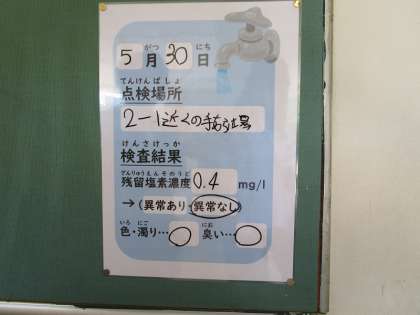 がつ にち
5月30日
てんけんばしょ
点検場所
2-1近くの手あらい場
けんさけっか
検査結果
ざんりゅうえんそのうど
残留塩素濃度 0.4 mg/l
→(異常あり・異常なし)
いろ にご にお
色・濁り…○ 臭い…○